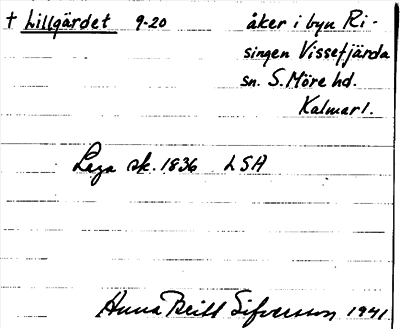 † Lillgärdet 9-20 åker i byn Ri-
singen Vissefjärda
sn. S. Möre hd.
Kalmar l.
Laga sk. 1836 LSA
Anna Britt Sifversson 1941.